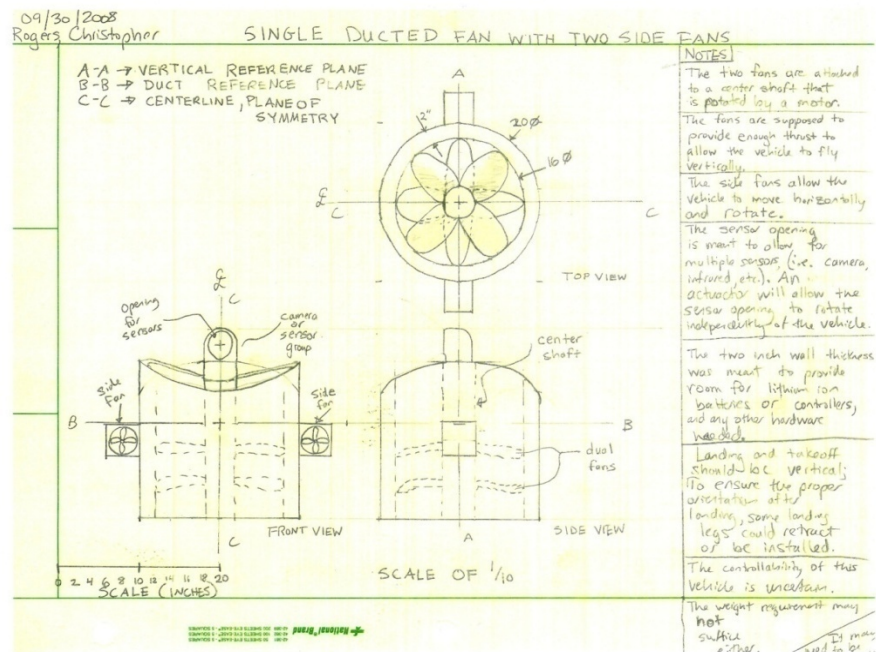 09/30/2008
Rogers Christopher
SINGLE DUCTED FAN WITH TWO SIDE FANS
A-A → VERTICAL REFERENCE PLANE
B-B → DUCT REFERENCE PLANE
C-C → CENTERLINE, PLANE OF
SYMMETRY
A
2"
20⌀
16⌀
℄
C
C
TOP VIEW
℄
C
opening
for
sensors
camera
or
sensor
group
side
fan
side
fan
B
FRONT VIEW
C
center
shaft
B
dual
fans
SIDE VIEW
A
0 2 4 6 8 10 12 14 16 18 20
SCALE (INCHES)
SCALE OF 1/10
NOTES
The two fans are attached
to a center shaft that
is rotated by a motor.
The fans are supposed to
provide enough thrust to
allow the vehicle to fly
vertically.
The side fans allow the
vehicle to move horizontally
and rotate.
The sensor opening
is meant to allow for
multiple sensors, (i.e. camera,
infrared, etc.). An
actuator will allow the
sensor opening to rotate
independently of the vehicle.
The two inch wall thickness
was meant to provide
room for lithium ion
batteries or controllers,
and any other hardware
needed.
Landing and takeoff
should be vertical;
To ensure the proper
orientation after
landing, some landing
legs could retract
or be installed.
The controllability of this
vehicle is uncertain.
The weight requirement may
not
suffice
either.
It may
need to be
National® Brand